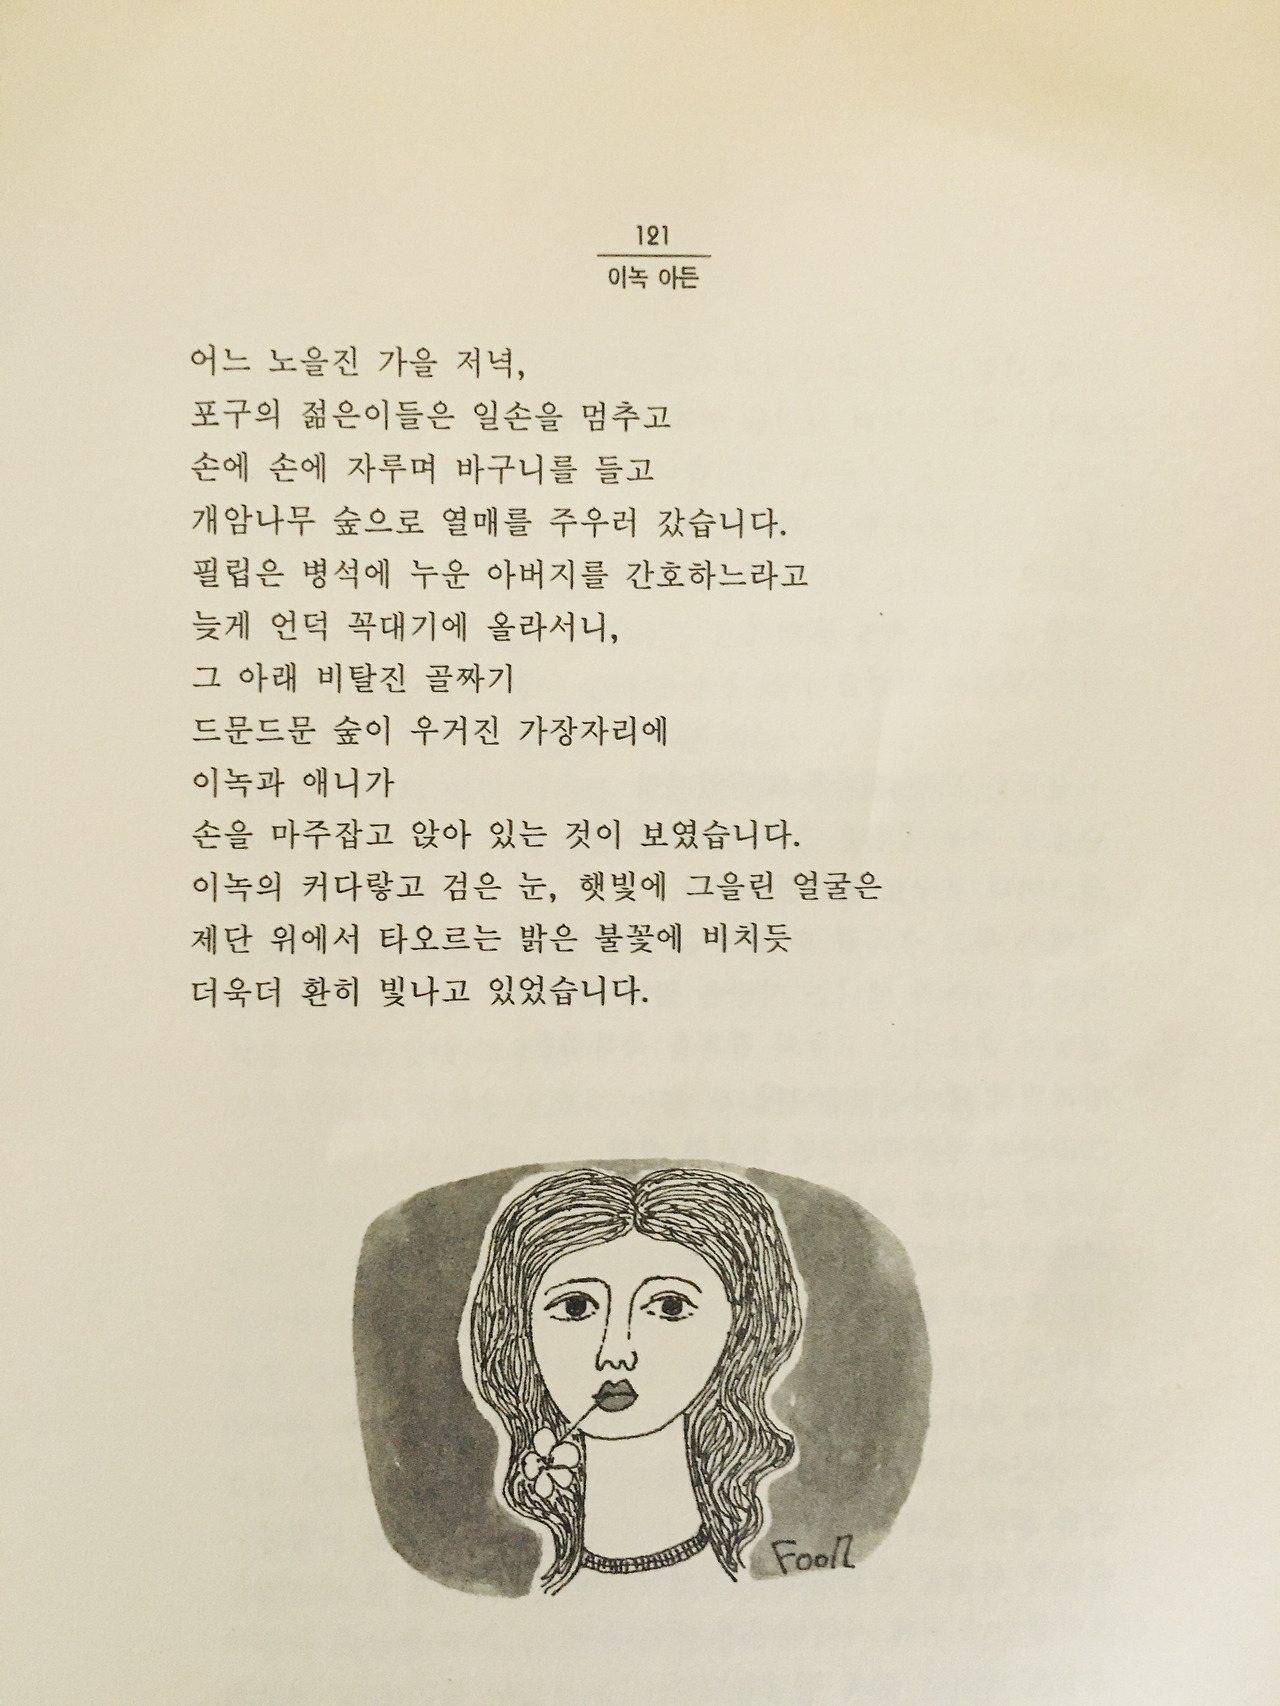 121
이녹 아든
어느 노을진 가을 저녁,
포구의 젊은이들은 일손을 멈추고
손에 손에 자루며 바구니를 들고
개암나무 숲으로 열매를 주우러 갔습니다.
필립은 병석에 누운 아버지를 간호하느라고
늦게 언덕 꼭대기에 올라서니,
그 아래 비탈진 골짜기
드문드문 숲이 우거진 가장자리에
이녹과 애니가
손을 마주잡고 앉아 있는 것이 보였습니다.
이녹의 커다랗고 검은 눈, 햇빛에 그을린 얼굴은
제단 위에서 타오르는 밝은 불꽃에 비치듯
더욱더 환히 빛나고 있었습니다.